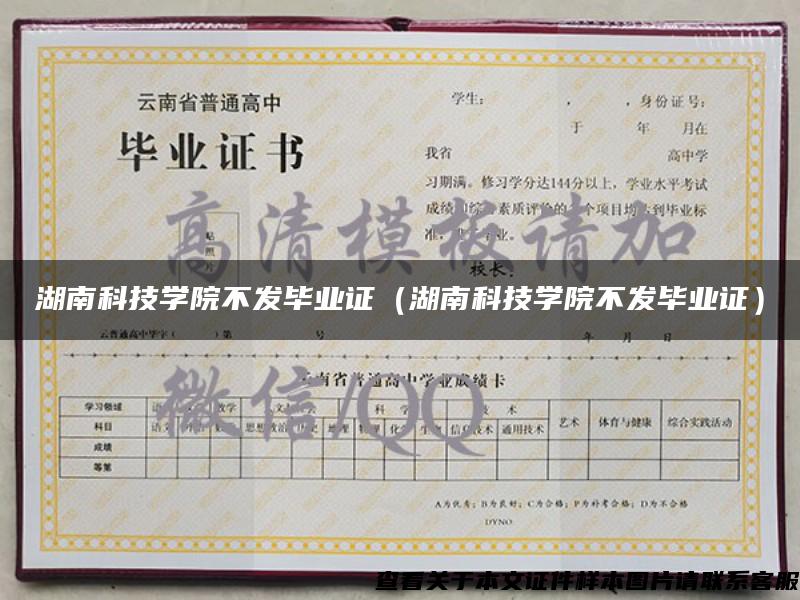 云南省普通高中
毕业证书
贴
照
片
学生： ， ，身份证号：
于 年 月在
我省 高中学
习期满。修习学分达144分以上，学业水平考试
成绩和综 素质评 个项目均 到毕业标
准， 业。
校长：
高清模板请加
湖南科技学院不发毕业证（湖南科技学院不发毕业证）
云普通高中毕字（ ）第 号
年 月 日
微信/QQ
云南省普通高中学业成绩卡
学习领域 数学 科 学 技 术 艺术 体育与健康 综合实践活动
科目 语文 思想政治 历史 地理 物理 化学 生物 信息技术 通用技术
成绩
等第
A为优秀；B为良好；C为合格；P为补考合格；D为不合格
DYNO:
查看关于本文证件样本图片请联系客服